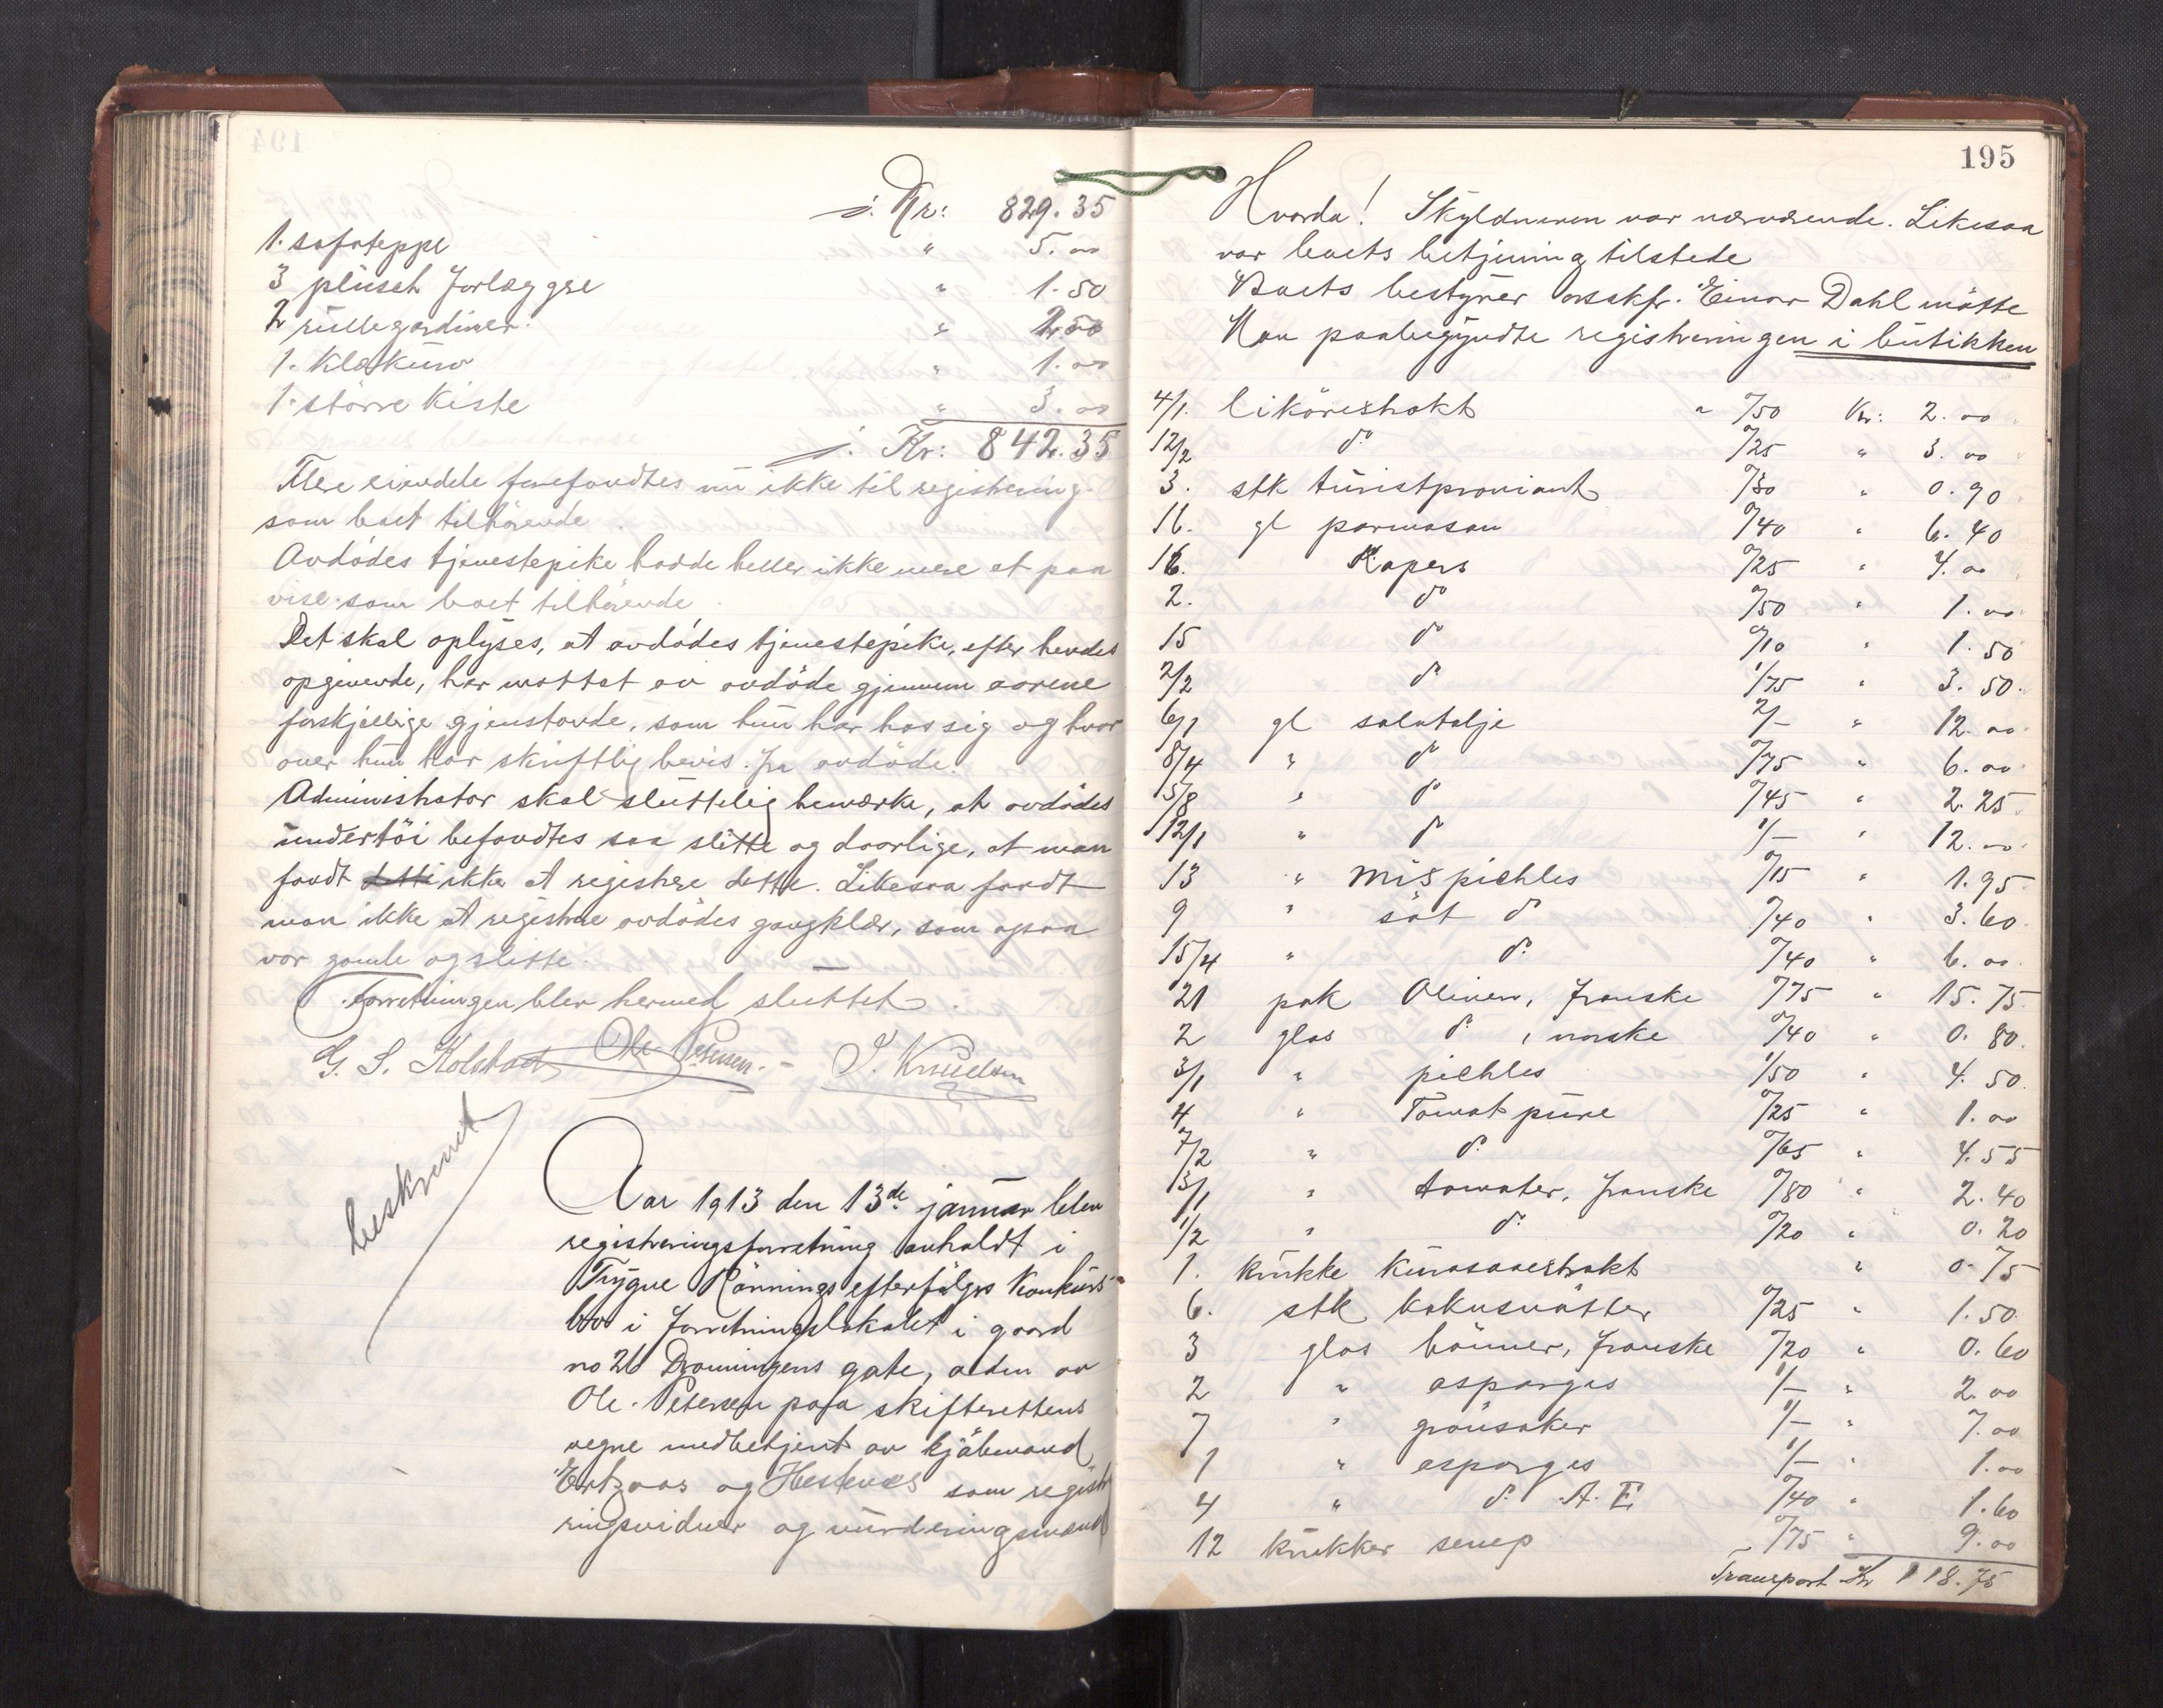 194
s. Kr: 829.35
1. sofateppe " 5.00
3 plüsch forlæggre " 1.50
2 rüllegardiner. " 2.00
1. Klækürv " 1.00
1. större Kiste " 3.00
s. Kr: 842.35
Flere eiendele forefandtes nü ikke til registrering
som boet tilhörende.
Avdödes tjenestepike hadde heller ikke mere at paa
vise som boet tilhörende.
Det skal oplyses, at avdödes tjenestepike, efter hendes
opgivende, har mottat av avdöde gjennem aarene
forskjellige gjenstande, som hün har hos sig og hvor
over hün har skriftlig bevis fra avdöde.
Administrator skal slüttelig bemærke, at avdödes
ündertöi befandtes saa slitte og daarlige, at man
fandt dette ikke at registrere dette. Likesaa fandt
man ikke at registrere avdödes gangklær, som ogsaa
var gamle og slitte.
Forretningen blev hermed slüttet.
G. S. Kolstad Ole Petersen.- S. Knüdsen
beskrevet
Aar 1913 den 13de janüar blev
registreringsforretning avholdt i
Trygve Rönnings efterfölgers Konkürs
bo i forretningslokalet i gaard
no 26 Dronningens gate, alden av
Ole Petersen paa skifterettens
vegne medbetjent av kjöbmænd
og Hestenes som registre
ringsvidner og vürderingsmænd
195
Hvorda! Skyldneren var nærværende. Likesaa
var boets betjening tilstede
Boets bestyrer orsskfr. Einar Dahl mötte
Man paabegyndte registreringen i bütikken
4/1. liköresktrakt " 0/50 Kr: 2.00
12/2 do 0/25 " 3.00
3. stk türistproviant 0/30 " 0.90
16. gl parmasan 0/40 " 6.40
16. Kapers 0/25 " 4.00
2. do 0/50 " 1.00
15 do 0/10 " 1.50
2/2 do 1/75 " 3.50
6/1 gl salatolje 2/- " 12.00
8/4 " do 0/75 " 6.00
5/8 " do 0/45 " 2.25
12/1 " do 1/- " 12.00
13 " mis pickles 0/15 " 1.95
9 " söt do 0/40 " 3.60
15/4 " do 0/40 " 6.00
21 pak Oliven, franske 0/75 " 15.75
2 glas do, norske 0/40 " 0.80
3/1 " pickles 1/50 " 4.50
4 " Tomat püre 0/25 " 1.00
7/2 " do 0/65 " 4.55
3/1 " tomater, franske 0/80 " 2.40
1/2 " do 0/20 " 0.20
1. krükke " 0.75
6. stk kokusnötter 0/25 " 1.50
3 glas bönner, franske 0/20 " 0.60
2 " asparges 1/- " 2.00
7 " grönsaker 1/- " 7.00
1 " asparges 1/- " 1.00
4 " do A. E. 0/40 " 1.60
12 krükker senep 0/75 " 9.00
Transport Kr 118.75